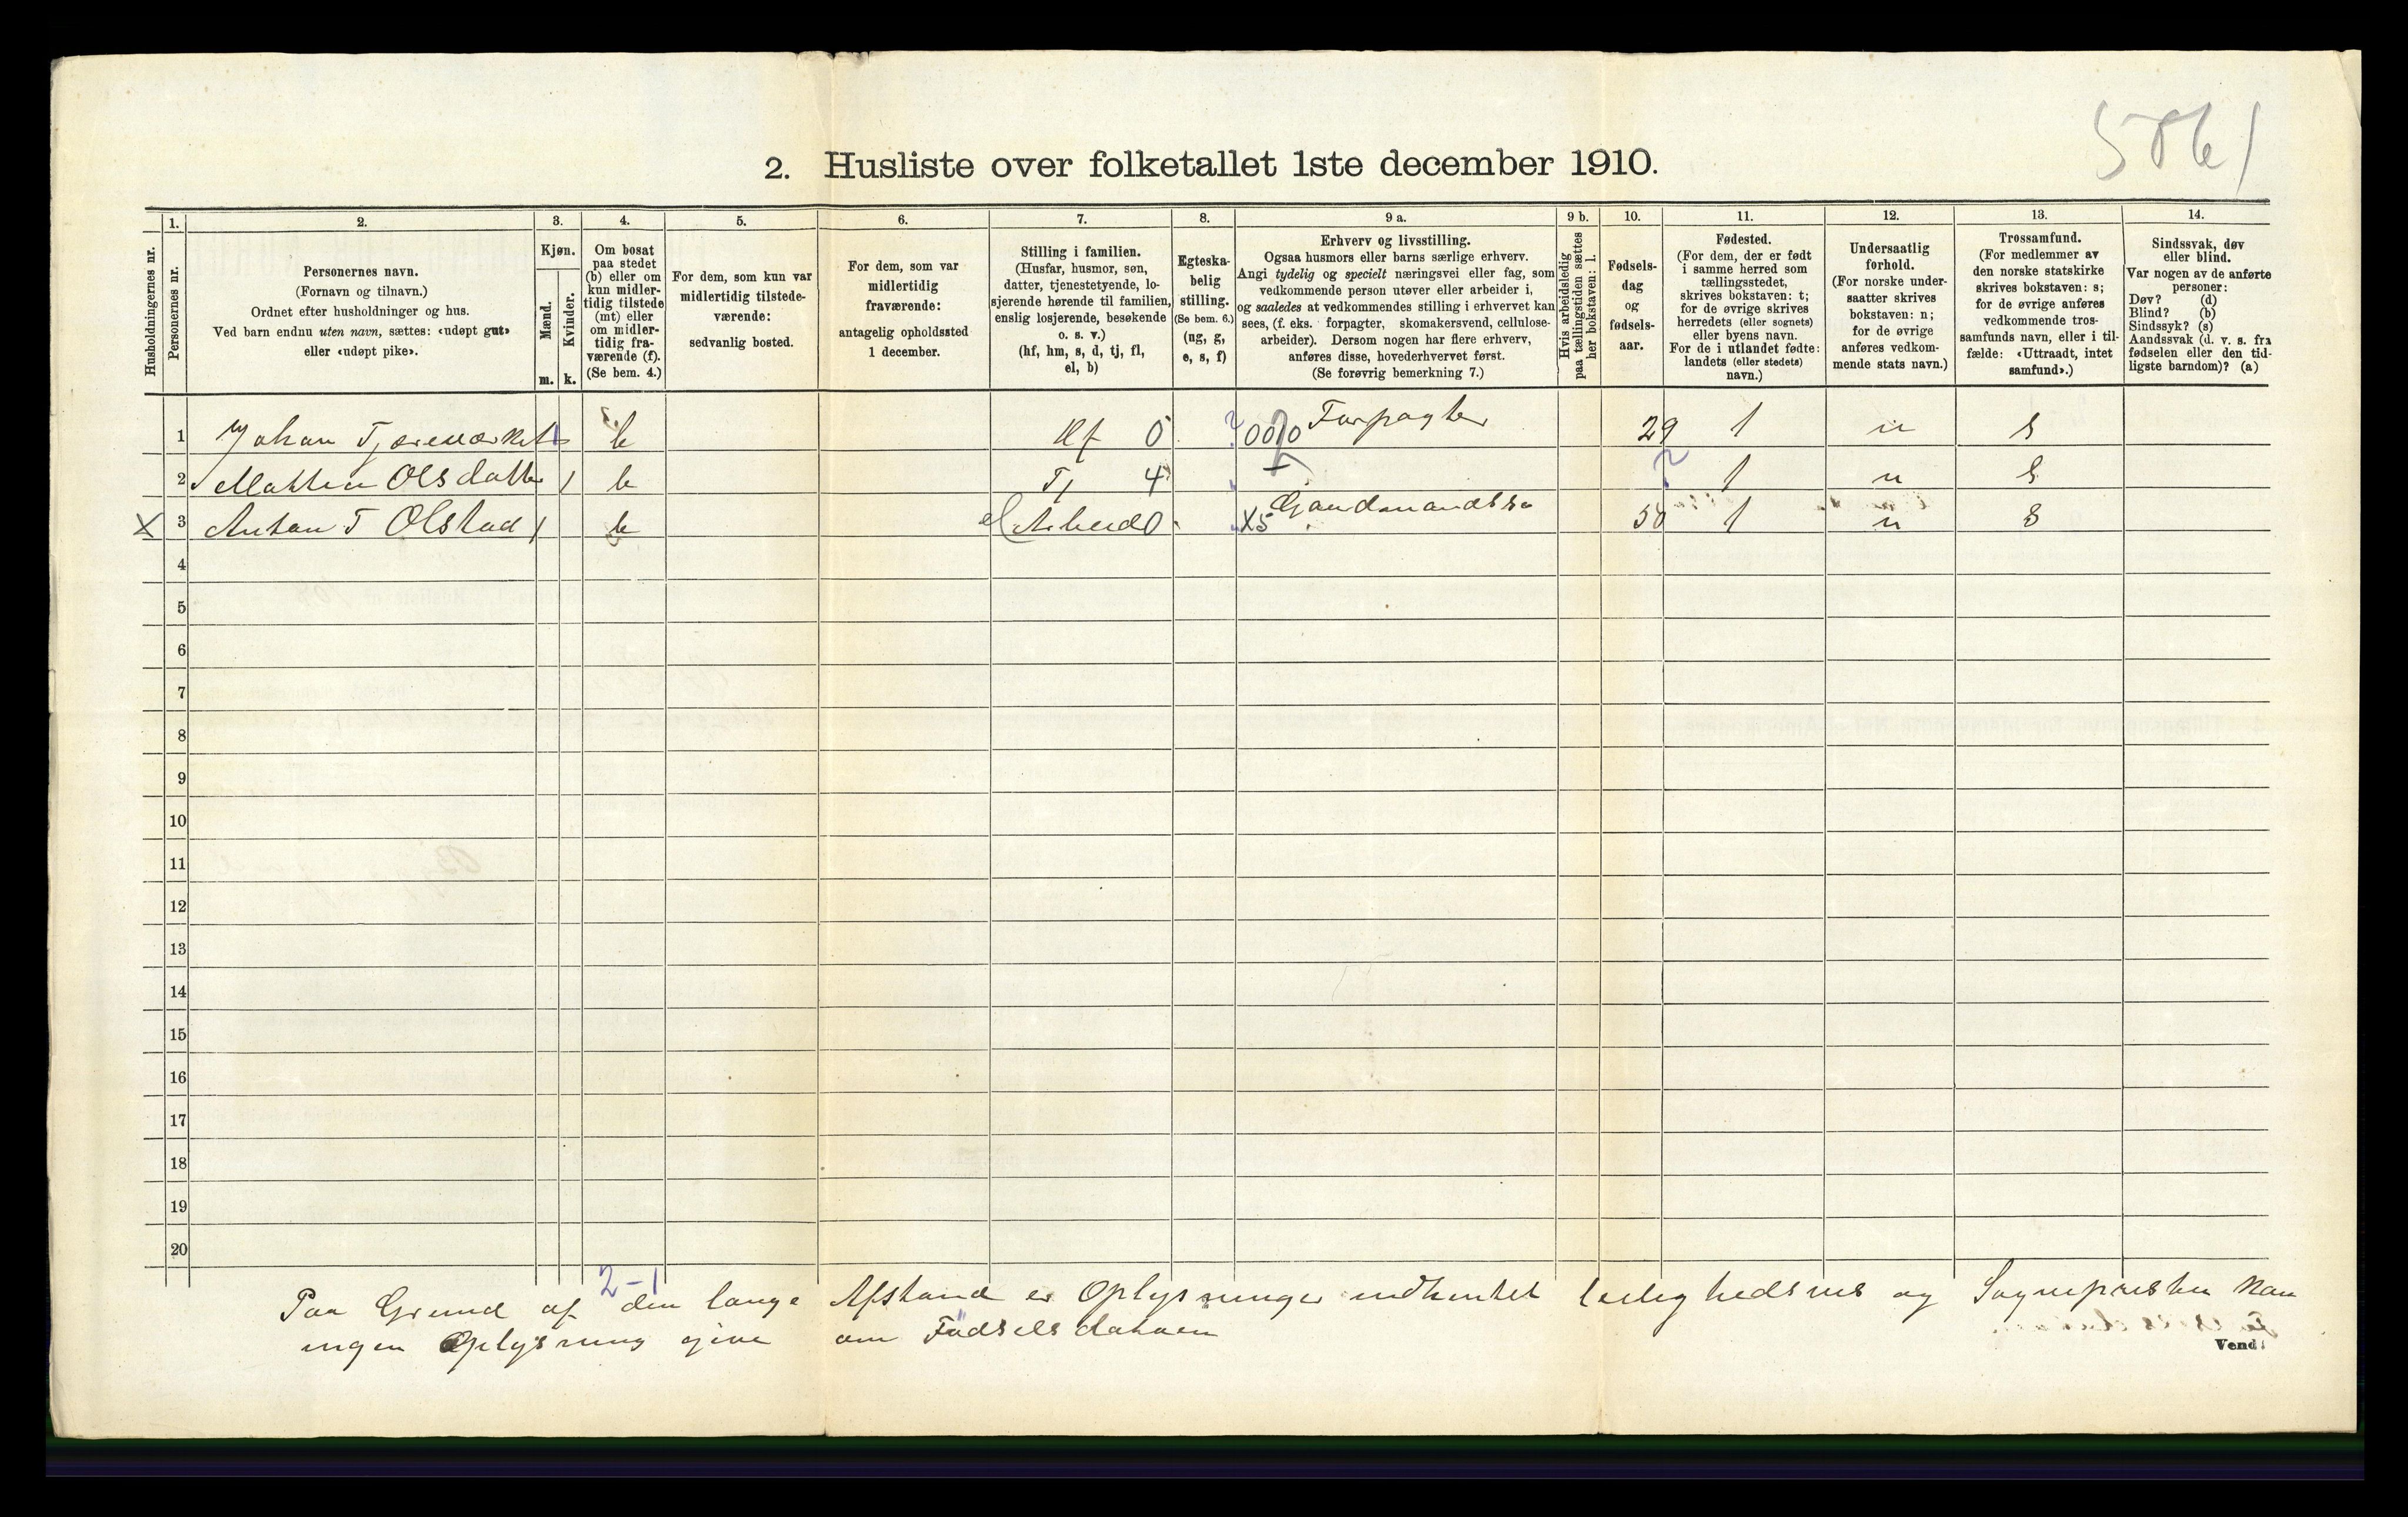 2. Husliste over folketallet 1ste december 1910.
1. 2. 3. 4. 5. 6. 7. 8. 9 a. 9 b. 10. 11. 12. 13. 14.
Husholdningernes nr.
Personernes nr.
Personernes navn.
(Fornavn og tilnavn.)
Ordnet efter husholdninger og hus.
Ved barn endnu uten navn, sættes: «udøpt gut»
eller «udøpt pike».
Kjøn.
Mænd.
Kvinder.
m. k.
Om bosat
paa stedet
(b) eller om
kun midler-
tidig tilstede
(mt) eller
om midler-
tidig fra-
værende (f).
(Se bem. 4.)
For dem, som kun var
midlertidig tilstede-
værende:
sedvanlig bosted.
For dem, som var
midlertidig
fraværende:
antagelig opholdssted
1 december.
Stilling i familien.
(Husfar, husmor, søn,
datter, tjenestetyende, lo-
sjerende hørende til familien,
enslig losjerende, besøkende
o. s. v.)
(hf, hm, s, d, tj, fl,
el, b)
Egteska-
belig
stilling.
(Se bem. 6.)
(ug, g,
e, s, f)
Erhverv og livsstilling.
Ogsaa husmors eller barns særlige erhverv.
Angi tydelig og specielt næringsvei eller fag, som
vedkommende person utøver eller arbeider i,
og saaledes at vedkommendes stilling i erhvervet kan
sees, (f. eks. forpagter, skomakersvend, cellulose-
arbeider). Dersom nogen har flere erhverv,
anføres disse, hovederhvervet først.
(Se forøvrig bemerkning 7.)
Hvis arbeidsledig
paa tællingstiden sættes
her bokstaven: l.
Fødsels-
dag
og
fødsels-
aar.
Fødested.
(For dem, der er født
i samme herred som
tællingsstedet,
skrives bokstaven: t;
for de øvrige skrives
herredets (eller sognets)
eller byens navn.
For de i utlandet fødte:
landets (eller stedets)
navn.)
Undersaatlig
forhold.
(For norske under-
saatter skrives
bokstaven: n;
for de øvrige
anføres vedkom-
mende stats navn.)
Trossamfund.
(For medlemmer av
den norske statskirke
skrives bokstaven: s;
for de øvrige anføres
vedkommende tros-
samfunds navn, eller i til-
fælde: «Uttraadt, intet
samfund».)
Sindssvak, døv
eller blind.
Var nogen av de anførte
personer:
Døv? (d)
Blind? (b)
Sindssyk? (s)
Aandssvak (d. v. s. fra
fødselen eller den tid-
ligste barndom)? (a)
1 Johan b Hf 0 Forpagter 29 t n s
2 Olsdatter 1 b Tj 4 ? t n s
X 3 Anton T Olstad 1 b el 0 X5 50 t n s
4
5
6
7
8
9
10
11
12
13
14
15
16
17
18
19
20
2-1
Paa Grund af den lange Afstand er Oplysninger indhentet leilighedsvis og Sognepresten kan
ingen Oplysning give om Fødselsdatoen
Vend!